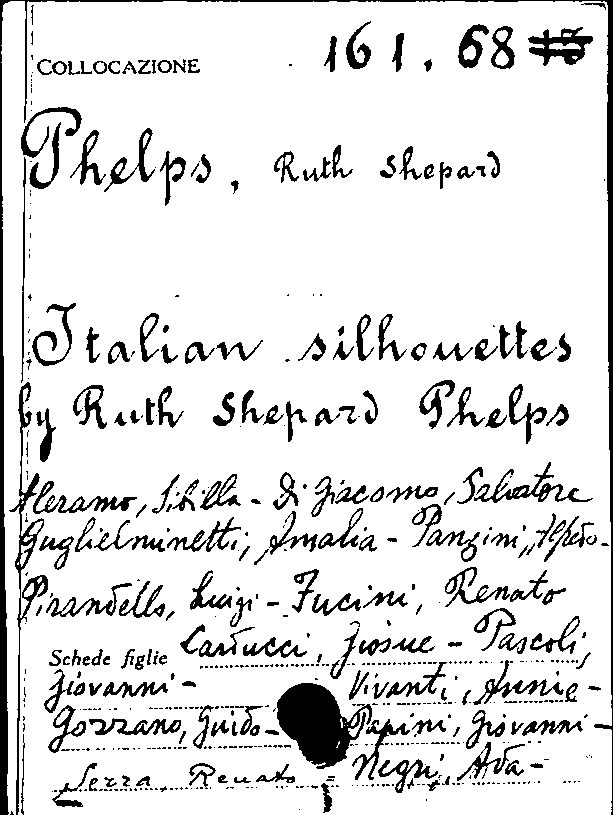 COLLOCAZIONE 161. 68
Phelps, Ruth Shepard
Italian silhouettes
by Ruth Shepard Phelps
Aleramo, Sibilla - Di Giacomo, Salvatore
Guglielminetti, Amalia - Panzini, Alfredo -
Pirandello, Luigi - Fucini, Renato
Schede figlie Carducci, Giosue - Pascoli,
Giovanni - Vivanti, Annie -
Gozzano, Guido - Papini, Giovanni -
Serra, Renato - Negri, Ada -